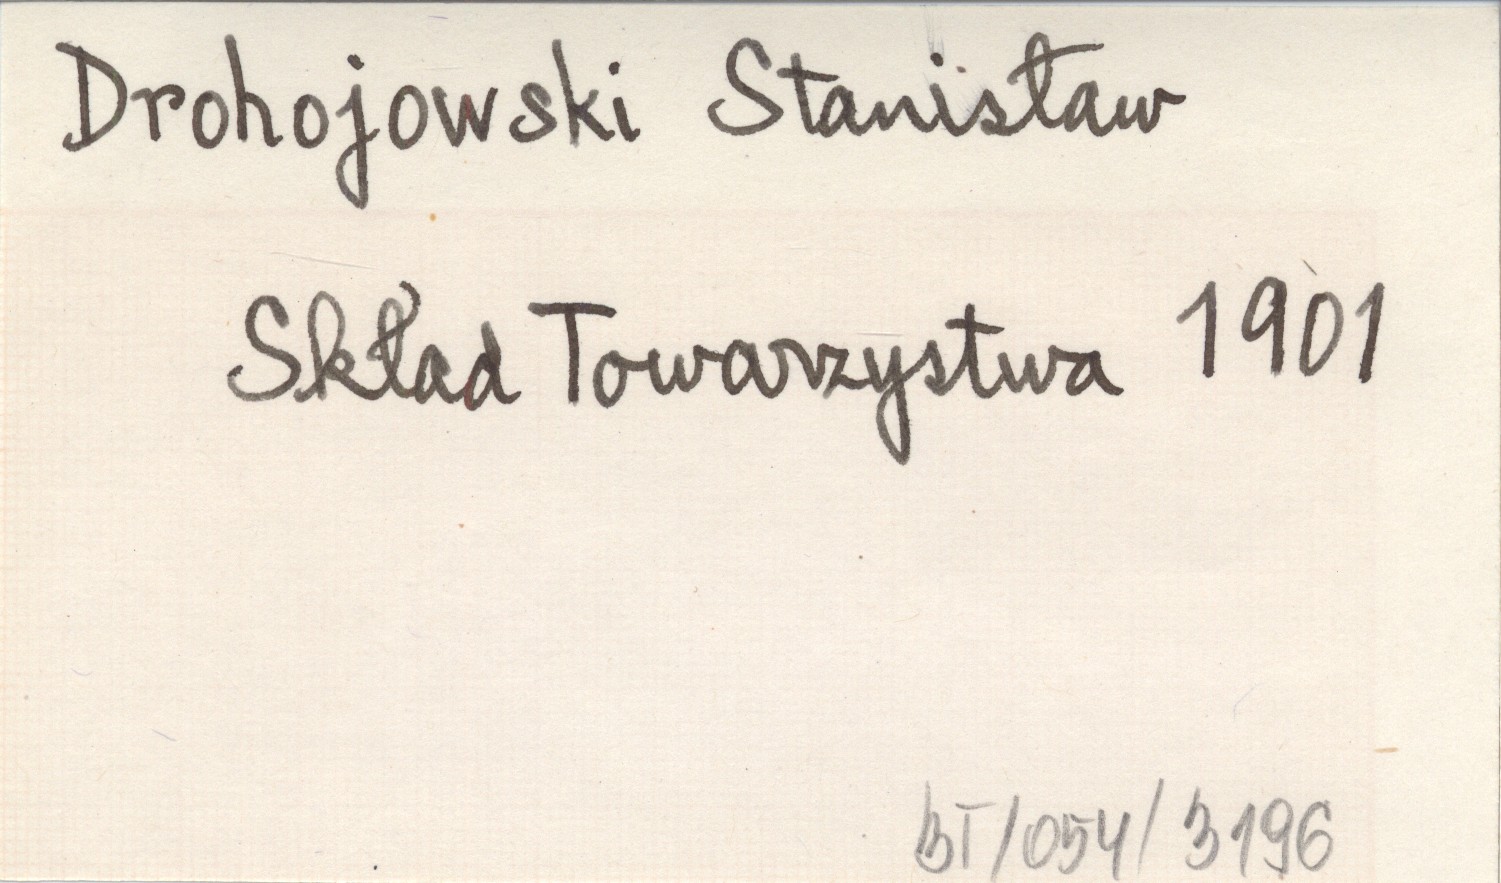 Drohojowski Stanisław
Skład Towarzystwa 1901
BT/054/3196